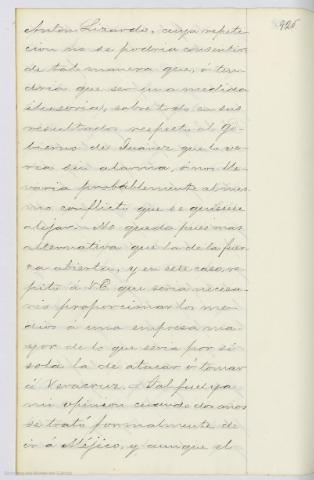 926
Anton Lizardo, cuya repeti-
cion no se podria consentir
de tal manera que, ó ten-
dria que ser una medida
ilusoria, sobre todo en sus
resultados respecto al Go-
bierno de Juarez que la ve-
ria sin alarma, ó nos lle-
varia probablemente al mis-
mo conflicto que se quisiese
alejar. No queda pues mas
alternativa que la de la fuer-
za abierta, y en este caso re-
pito á V.E. que seria necesa-
rio proporcionar los me-
dios á una empresa ma-
yor de lo que seria por sí
sola la de atacar ó tomar
á Veracruz. Tal fué ya
mi opinion cuando dos años
se trató formalmente de
ir á Méjico, y aunque el